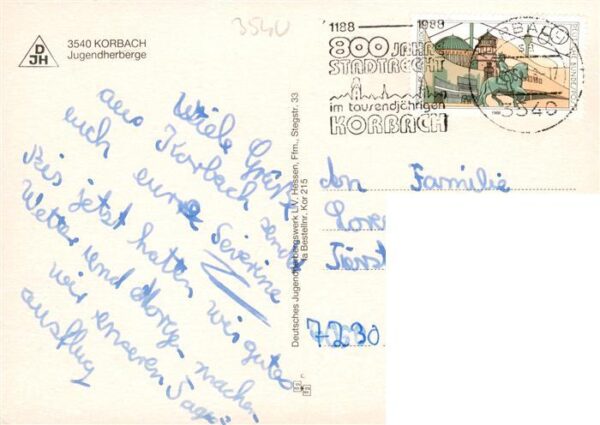 3540
D
JH
3540 KORBACH
Jugendherberge
1188 - 1988
800 JAHRE
STADTRECHT
im tausendjährigen
KORBACH
3540
Viele Grüße
aus Korbach sendet
euch eure Severine
Bis jetzt hatten wir gutes
Wetter und Morgen machen
wir unseren Tages
ausflug
Deutsches Jugendherbergswerk LV. Hessen, Ffm., Stegstr. 33
Bestellnr. Kor 215
An Familie
7230